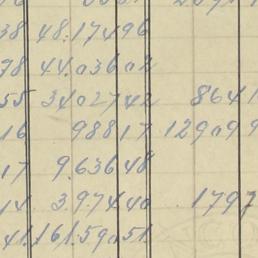 38 48.17496
78 44.03602
55 34.02742 8641
16 98817 12909 9
17 9.63648
14 3.97440 1797
41 161.59051